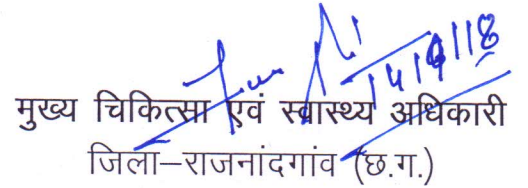 14/9/18
मुख्य चिकित्सा एवं स्वास्थ्य अधिकारी
जिला–राजनांदगांव (छ.ग.)